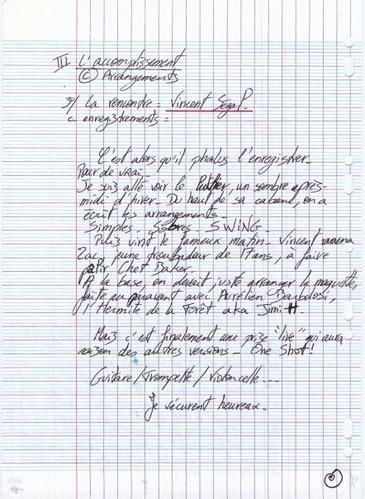 III L'accomplissement
(C) Arrangements
3) La rencontre = Vincent Segal.
c. enregistrements =
C'est alors qu'il fallut l'enregistrer.
Pour de vrai...
Je suis allé voir le, un sombre après-
midi d'hiver. Du haut de sa cabane, on a
écrit les arrangements.
Simples. Sobres. SWING.
Puis vint le fameux matin. Vincent ramena
Zac, jeune troubadour de 17 ans, à faire
pâlir Chet Baker.
A la base, on devait juste arranger la maquette,
faite auparavant avec Aurélien,
l'Hermite de la Forêt aka Jimi H.
Mais c'est finalement une prise "live" qui aura
raison des autres versions. One Shot!
Guitare/Trompette/Violoncelle...
Ils vécurent heureux.